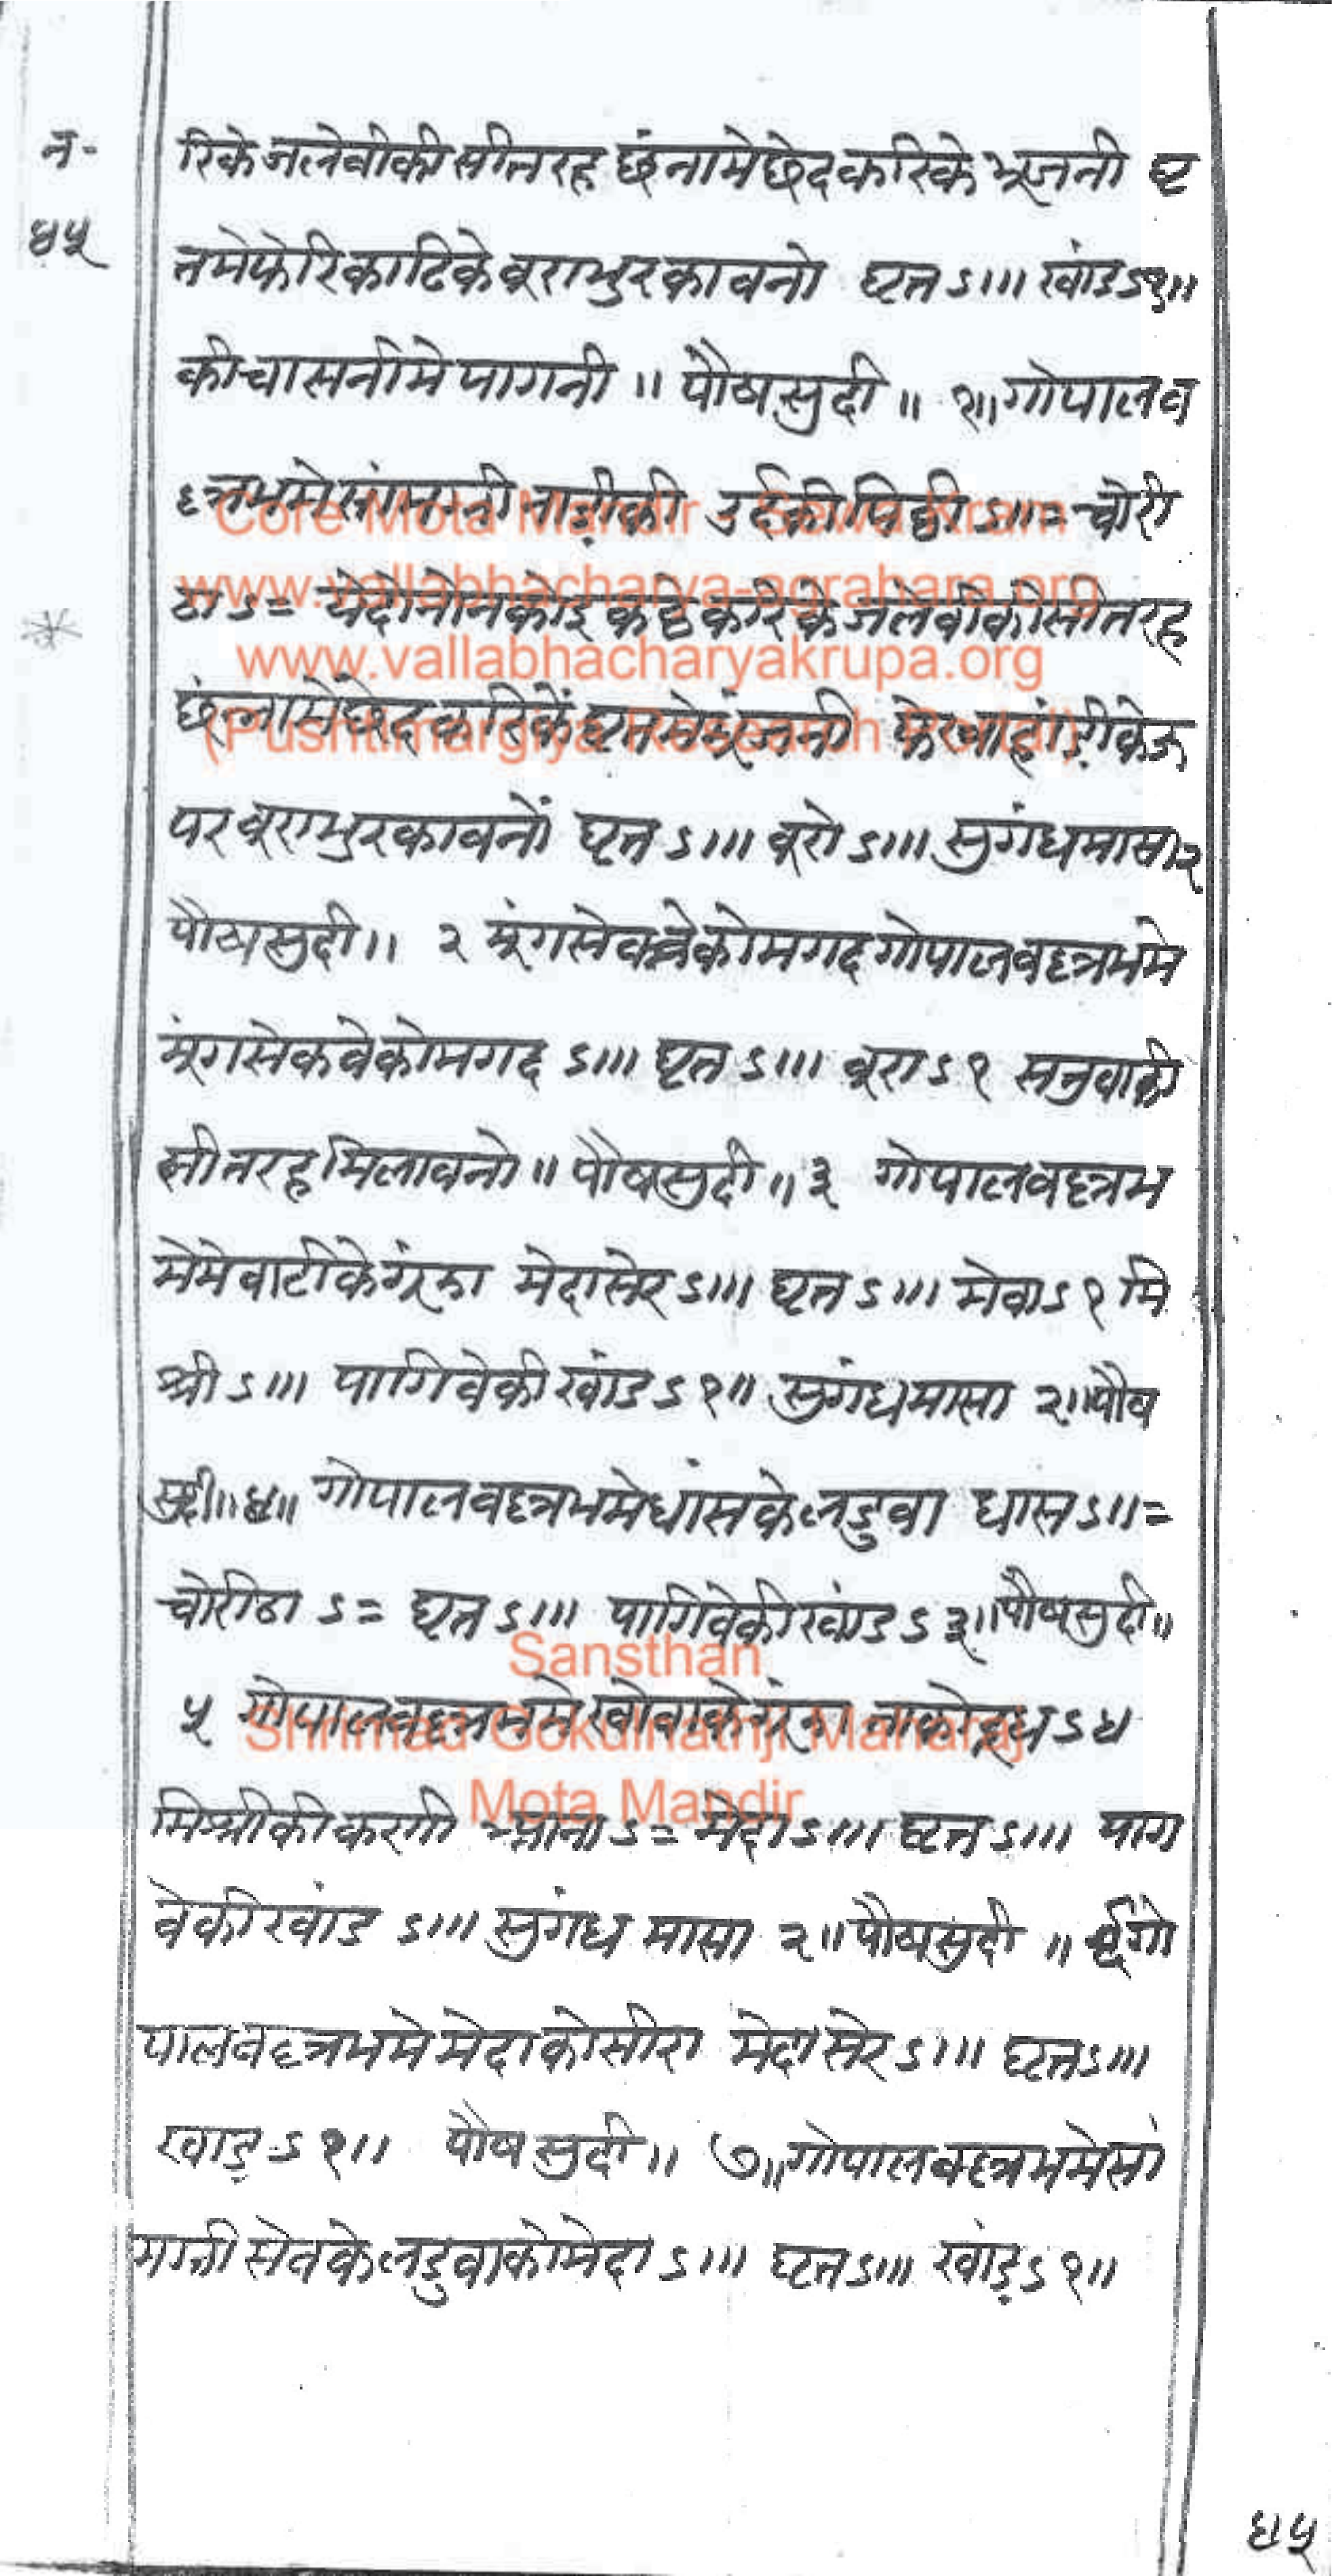 न॰
४५
रिके जलेबीकी सी तरह छंनामे छेद करिके भूजनी घृ
तमे फेरि काढिके बूरा भुरकावनो घृत ऽ।॥ खांड ऽ१॥
की चासनीमे पागनी ॥ पौषसुदी ॥ १॥ गोपालव
ल्लभमे सांमग्री उर्दकी पिठ्ठी ऽ॥= चोरी
ठा ऽ= ये दोनोनको इकठ्ठे करिके जलेबीकी सी तरह
छंनामें छेद करिकें घृतमे भूंजनी फेर के ऊ
पर बूरा भुरकावनों घृत ऽ।॥ बूरो ऽ।॥ सुगंध मासा २
पौषसुदी ॥ २ मूंग सेकवेको मगद गोपालवल्लभमे
मूंग सेकवेको मगद ऽ।॥ घृत ऽ।॥ बूरा ऽ१ सतुवाकी
सी तरह मिलावनो ॥ पौषसुदी ॥ ३ गोपालवल्लभ
मे मेवाटीके गूंझा मेदा सेर ऽ।॥ घृत ऽ।॥ मेवा ऽ१ मि
श्री ऽ।॥ पागिवेकी खांड ऽ१॥ सुगंध मासा २॥ पौष
सुदी ॥ ४॥ गोपालवल्लभमे धांसके लडुवा धांस ऽ॥=
चोरीठा ऽ= घृत ऽ।॥ पागिवेकी खांड ऽ३॥ पौषसुदी ॥
५ गोपालवल्लभमे खोवाके गूंझा ताको दूध ऽ४
मिश्रीकी कणी ऽ= मेदा ऽ।॥ घृत ऽ।॥ पाग
वेकी खांड ऽ।॥ सुगंध मासा २॥ पौषसुदी ॥ ६ गो
पालवल्लभमे मेदाको सीरा मेदा सेर ऽ।॥ घृत ऽ।॥
खाड़ ऽ१॥ पौषसुदी ॥ ७॥ गोपालवल्लभमे सां
मग्री सेवके लडुवाको मेदा ऽ।॥ घृत ऽ।॥ खांड़ ऽ१॥
४५
Core Mota Mandir Sewa Kram
www.vallabhacharya-agrahara.org
www.vallabhacharyakrupa.org
(Pushtimargiya Research Portal)
Sansthan
Shrimad Gokulnathji Maharaj
Mota Mandir